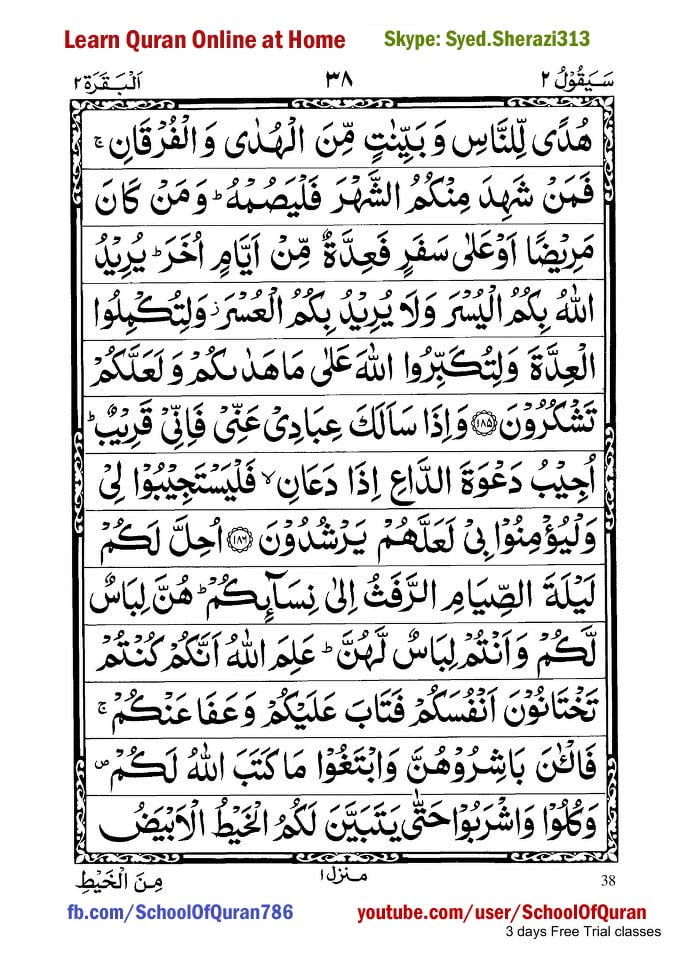 Learn Quran Online at Home Skype: Syed.Sherazi313
سَيَقُوْلُ ٢ ٣٨ اَلْبَقَرَة ٢
هُدًى لِّلنَّاسِ وَ بَيِّنٰتٍ مِّنَ الْهُدٰى وَ الْفُرْقَانِ ۚ
فَمَنْ شَهِدَ مِنْكُمُ الشَّهْرَ فَلْيَصُمْهُ ؕ وَ مَنْ كَانَ
مَرِيْضًا اَوْ عَلٰى سَفَرٍ فَعِدَّةٌ مِّنْ اَيَّامٍ اُخَرَ ؕ يُرِيْدُ
اللّٰهُ بِكُمُ الْيُسْرَ وَلَا يُرِيْدُ بِكُمُ الْعُسْرَ ؗ وَلِتُكْمِلُوا
الْعِدَّةَ وَلِتُكَبِّرُوا اللّٰهَ عَلٰى مَا هَدٰىكُمْ وَ لَعَلَّكُمْ
تَشْكُرُوْنَ ﴿١٨٥﴾ وَاِذَا سَاَلَكَ عِبَادِيْ عَنِّيْ فَاِنِّيْ قَرِيْبٌ ؕ
اُجِيْبُ دَعْوَةَ الدَّاعِ اِذَا دَعَانِ ۙ فَلْيَسْتَجِيْبُوْا لِيْ
وَلْيُؤْمِنُوْا بِيْ لَعَلَّهُمْ يَرْشُدُوْنَ ﴿١٨٦﴾ اُحِلَّ لَكُمْ
لَيْلَةَ الصِّيَامِ الرَّفَثُ اِلٰى نِسَآىِٕكُمْ ؕ هُنَّ لِبَاسٌ
لَّكُمْ وَ اَنْتُمْ لِبَاسٌ لَّهُنَّ ؕ عَلِمَ اللّٰهُ اَنَّكُمْ كُنْتُمْ
تَخْتَانُوْنَ اَنْفُسَكُمْ فَتَابَ عَلَيْكُمْ وَ عَفَا عَنْكُمْ ۚ
فَالْـٰٔنَ بَاشِرُوْهُنَّ وَابْتَغُوْا مَا كَتَبَ اللّٰهُ لَكُمْ ۪
وَ كُلُوْا وَاشْرَبُوْا حَتّٰى يَتَبَيَّنَ لَكُمُ الْخَيْطُ الْاَبْيَضُ
38 منزل ١ مِنَ الْخَيْطِ
fb.com/SchoolOfQuran786 youtube.com/user/SchoolOfQuran
3 days Free Trial classes